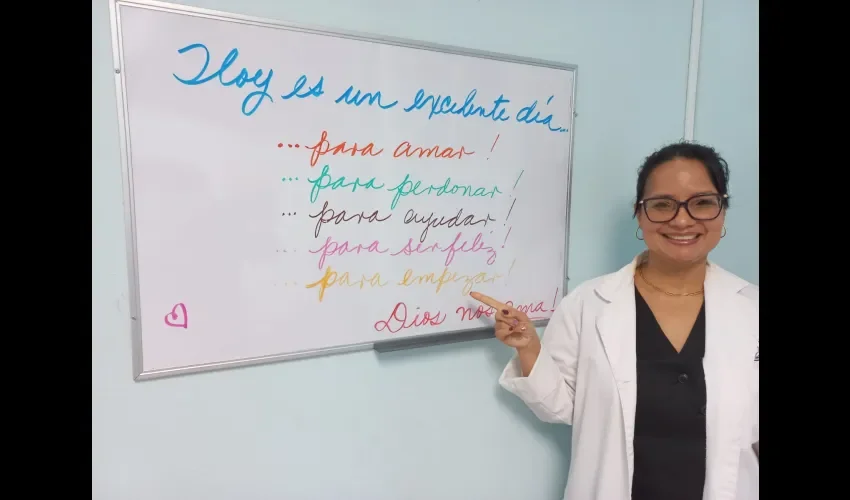 Hoy es un excelente día...
... para amar!
... para perdonar!
... para ayudar!
... para ser feliz!
... para empezar!
Dios nos ama!